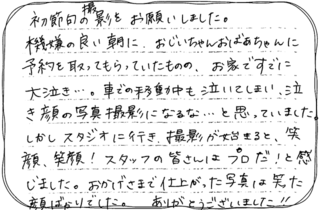 初節句の撮影をお願いしました。
機嫌の良い朝に、おじいちゃんおばあちゃんに
予約を取ってもらっていたものの、お家ですでに
大泣き…。車での移動中も泣いてしまい、泣
き顔の写真撮影になるな…と思っていました。
しかしスタジオに行き、撮影が始まると、笑
顔、笑顔!スタッフの皆さんはプロだ!と感
じました。おかげさまで仕上がった写真は笑った
顔ばかりでした。 ありがとうございました!!